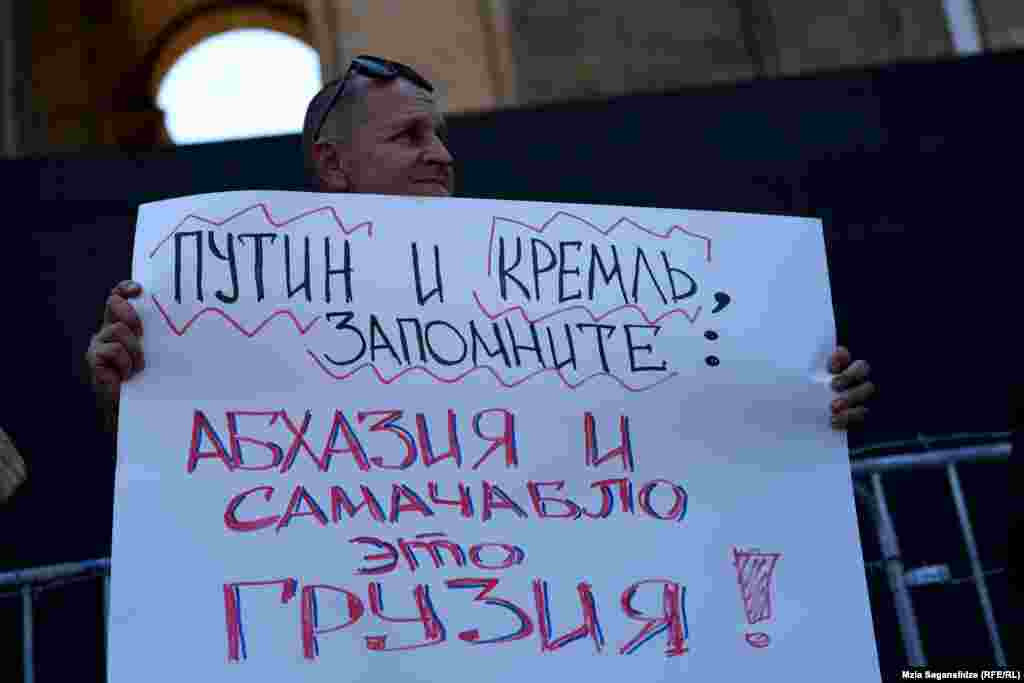 ПУТИН И КРЕМЛЬ,
ЗАПОМНИТЕ:
АБХАЗИЯ И
САМАЧАБЛО
ЭТО
ГРУЗИЯ!
Mzia Saganelidze (RFE/RL)